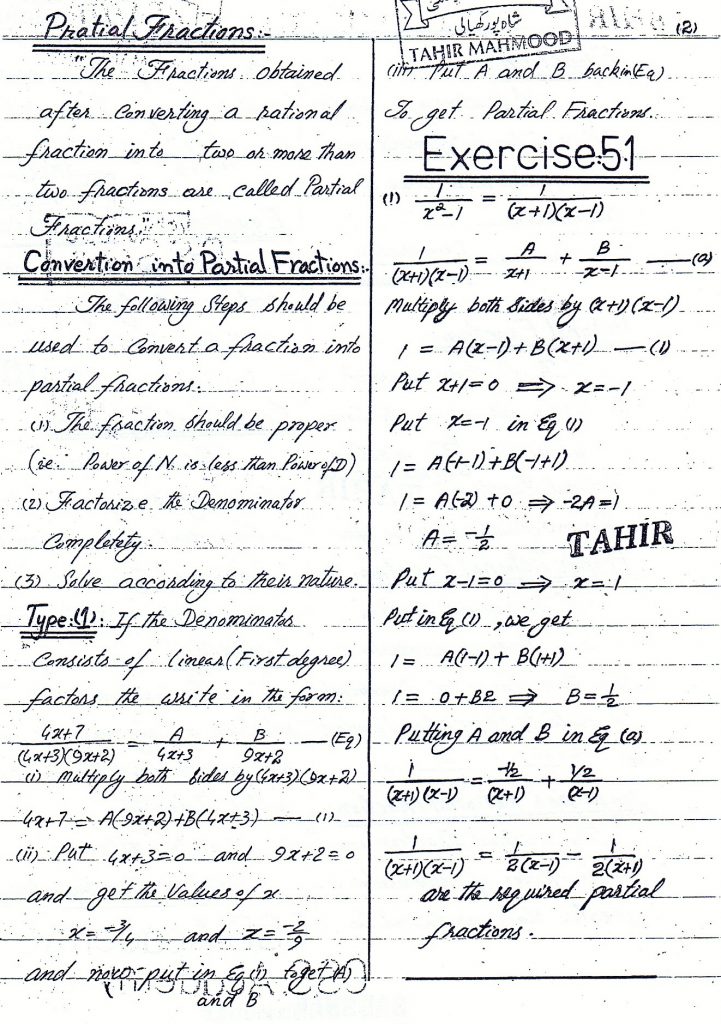 (2)
شاہ پور کھیالی
TAHIR MAHMOOD
Pratial Fractions:-
"The Fractions obtained
after Converting a rational
fraction into two or more than
two fractions are called Partial
Fractions."
Convertion into Partial Fractions:-
The following Steps should be
used to Convert a fraction into
partial fractions:
(1) The fraction should be proper
(ie. Power of N is less than Power of D)
(2) Factorize the Denominator
Completety.
(3) Solve according to their nature.
Type:(1): If the Denominator
Consists of linear (First degree)
factors the write in the form:
4x+7/(4x+3)(9x+2) = A/4x+3 + B/9x+2 —(Eq)
(i) Multiply both Sides by (4x+3)(9x+2)
4x+7 = A(9x+2)+B(4x+3) — (1)
(ii) Put 4x+3=0 and 9x+2=0
and get the Values of x
x = -3/4 and x = -2/9
and now put in Eq(1) to get (A)
and B
(iii) Put A and B back in (Eq)
To get Partial Fractions.
Exercise:5.1
(1) 1/x²-1 = 1/(x+1)(x-1)
1/(x+1)(x-1) = A/x+1 + B/x-1 —(a)
Multiply both Sides by (x+1)(x-1)
1 = A(x-1)+B(x+1) —(1)
Put x+1=0 ⟹ x=-1
Put x=-1 in Eq (1)
1 = A(-1-1)+B(-1+1)
1 = A(-2)+0 ⟹ -2A=1
A = -1/2
TAHIR
Put x-1=0 ⟹ x=1
Put in Eq (1), we get
1 = A(1-1) + B(1+1)
1 = 0+B2 ⟹ B=1/2
Putting A and B in Eq (a)
1/(x+1)(x-1) = -1/2/(x+1) + 1/2/(x-1)
1/(x+1)(x-1) = 1/2(x-1) - 1/2(x+1)
are the required partial
fractions.